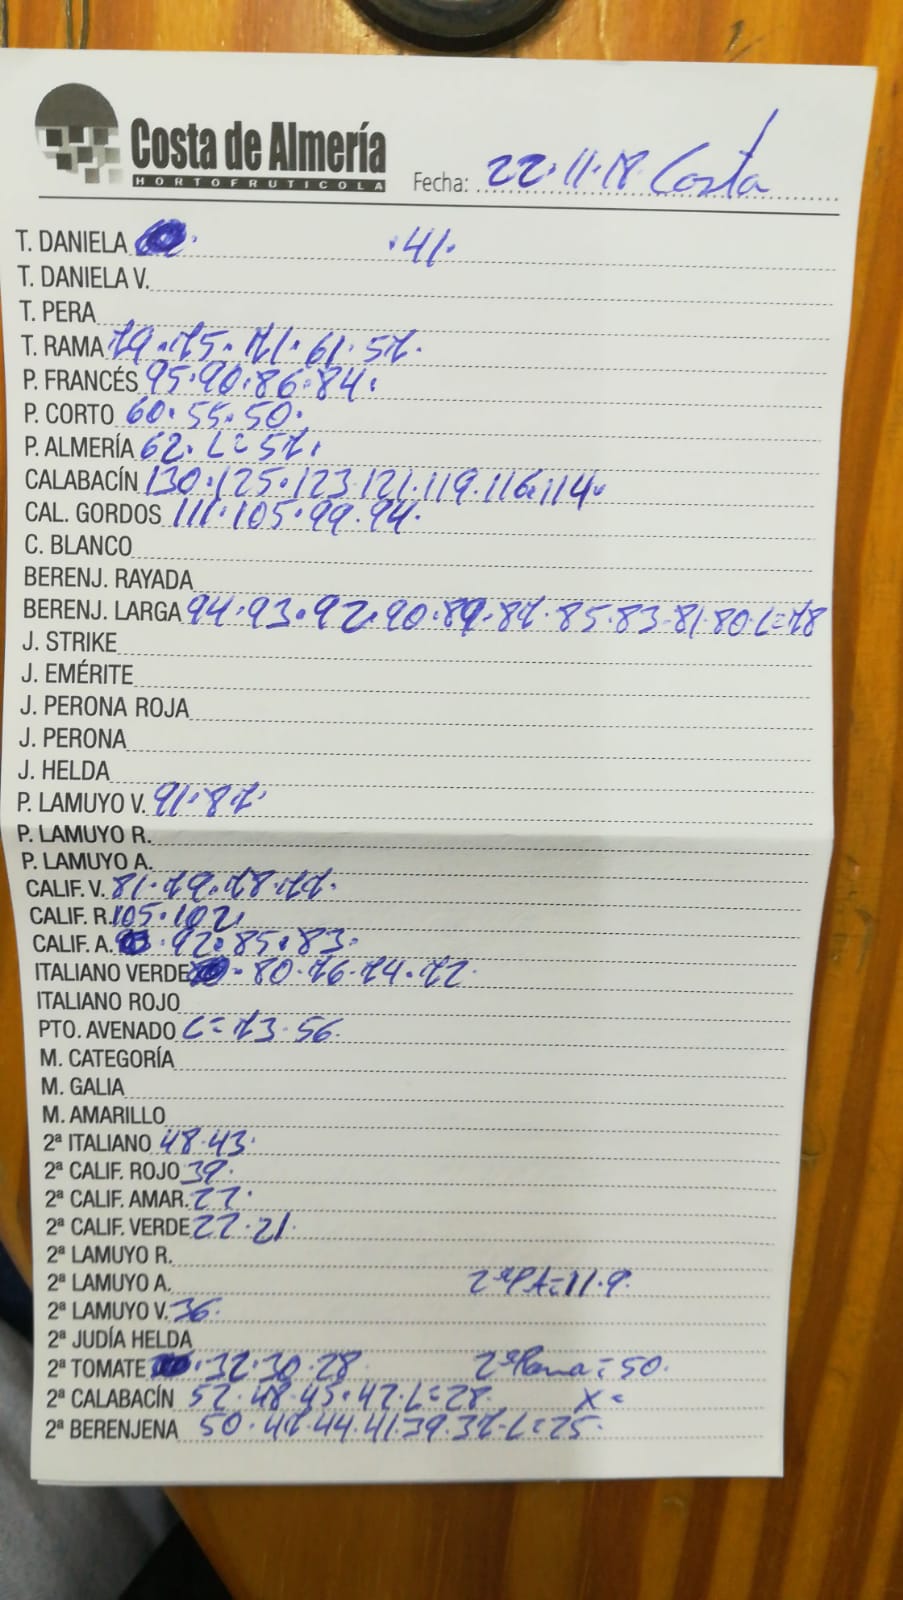 Costa de Almería
HORTOFRUTICOLA
Fecha: 22.11.18 Costa
T. DANIELA .41.
T. DANIELA V.
T. PERA
T. RAMA 79.75.71.61.57.
P. FRANCÉS 95.90.86.84.
P. CORTO 60.55.50.
P. ALMERÍA 62. L=57.
CALABACÍN 130.125.123.121.119.116.114.
CAL. GORDOS 111.105.99.94.
C. BLANCO
BERENJ. RAYADA
BERENJ. LARGA 94.93.92.90.89.87.85.83.81.80.L=78
J. STRIKE
J. EMÉRITE
J. PERONA ROJA
J. PERONA
J. HELDA
P. LAMUYO V. 91.87.
P. LAMUYO R.
P. LAMUYO A.
CALIF. V. 81.79.78.77.
CALIF. R. 105.102.
CALIF. A. .92.85.83.
ITALIANO VERDE .80.76.74.72.
ITALIANO ROJO
PTO. AVENADO L=73.56.
M. CATEGORÍA
M. GALIA
M. AMARILLO
2ª ITALIANO 48.43.
2ª CALIF. ROJO 39.
2ª CALIF. AMAR. 27.
2ª CALIF. VERDE 22.21
2ª LAMUYO R.
2ª LAMUYO A. 2ªPA=11.9.
2ª LAMUYO V. 36.
2ª JUDÍA HELDA
2ª TOMATE .32.30.28. 2ªRama=50.
2ª CALABACÍN 52.48.45.42.L=28. X=
2ª BERENJENA 50.47.44.41.39.37.L=25.